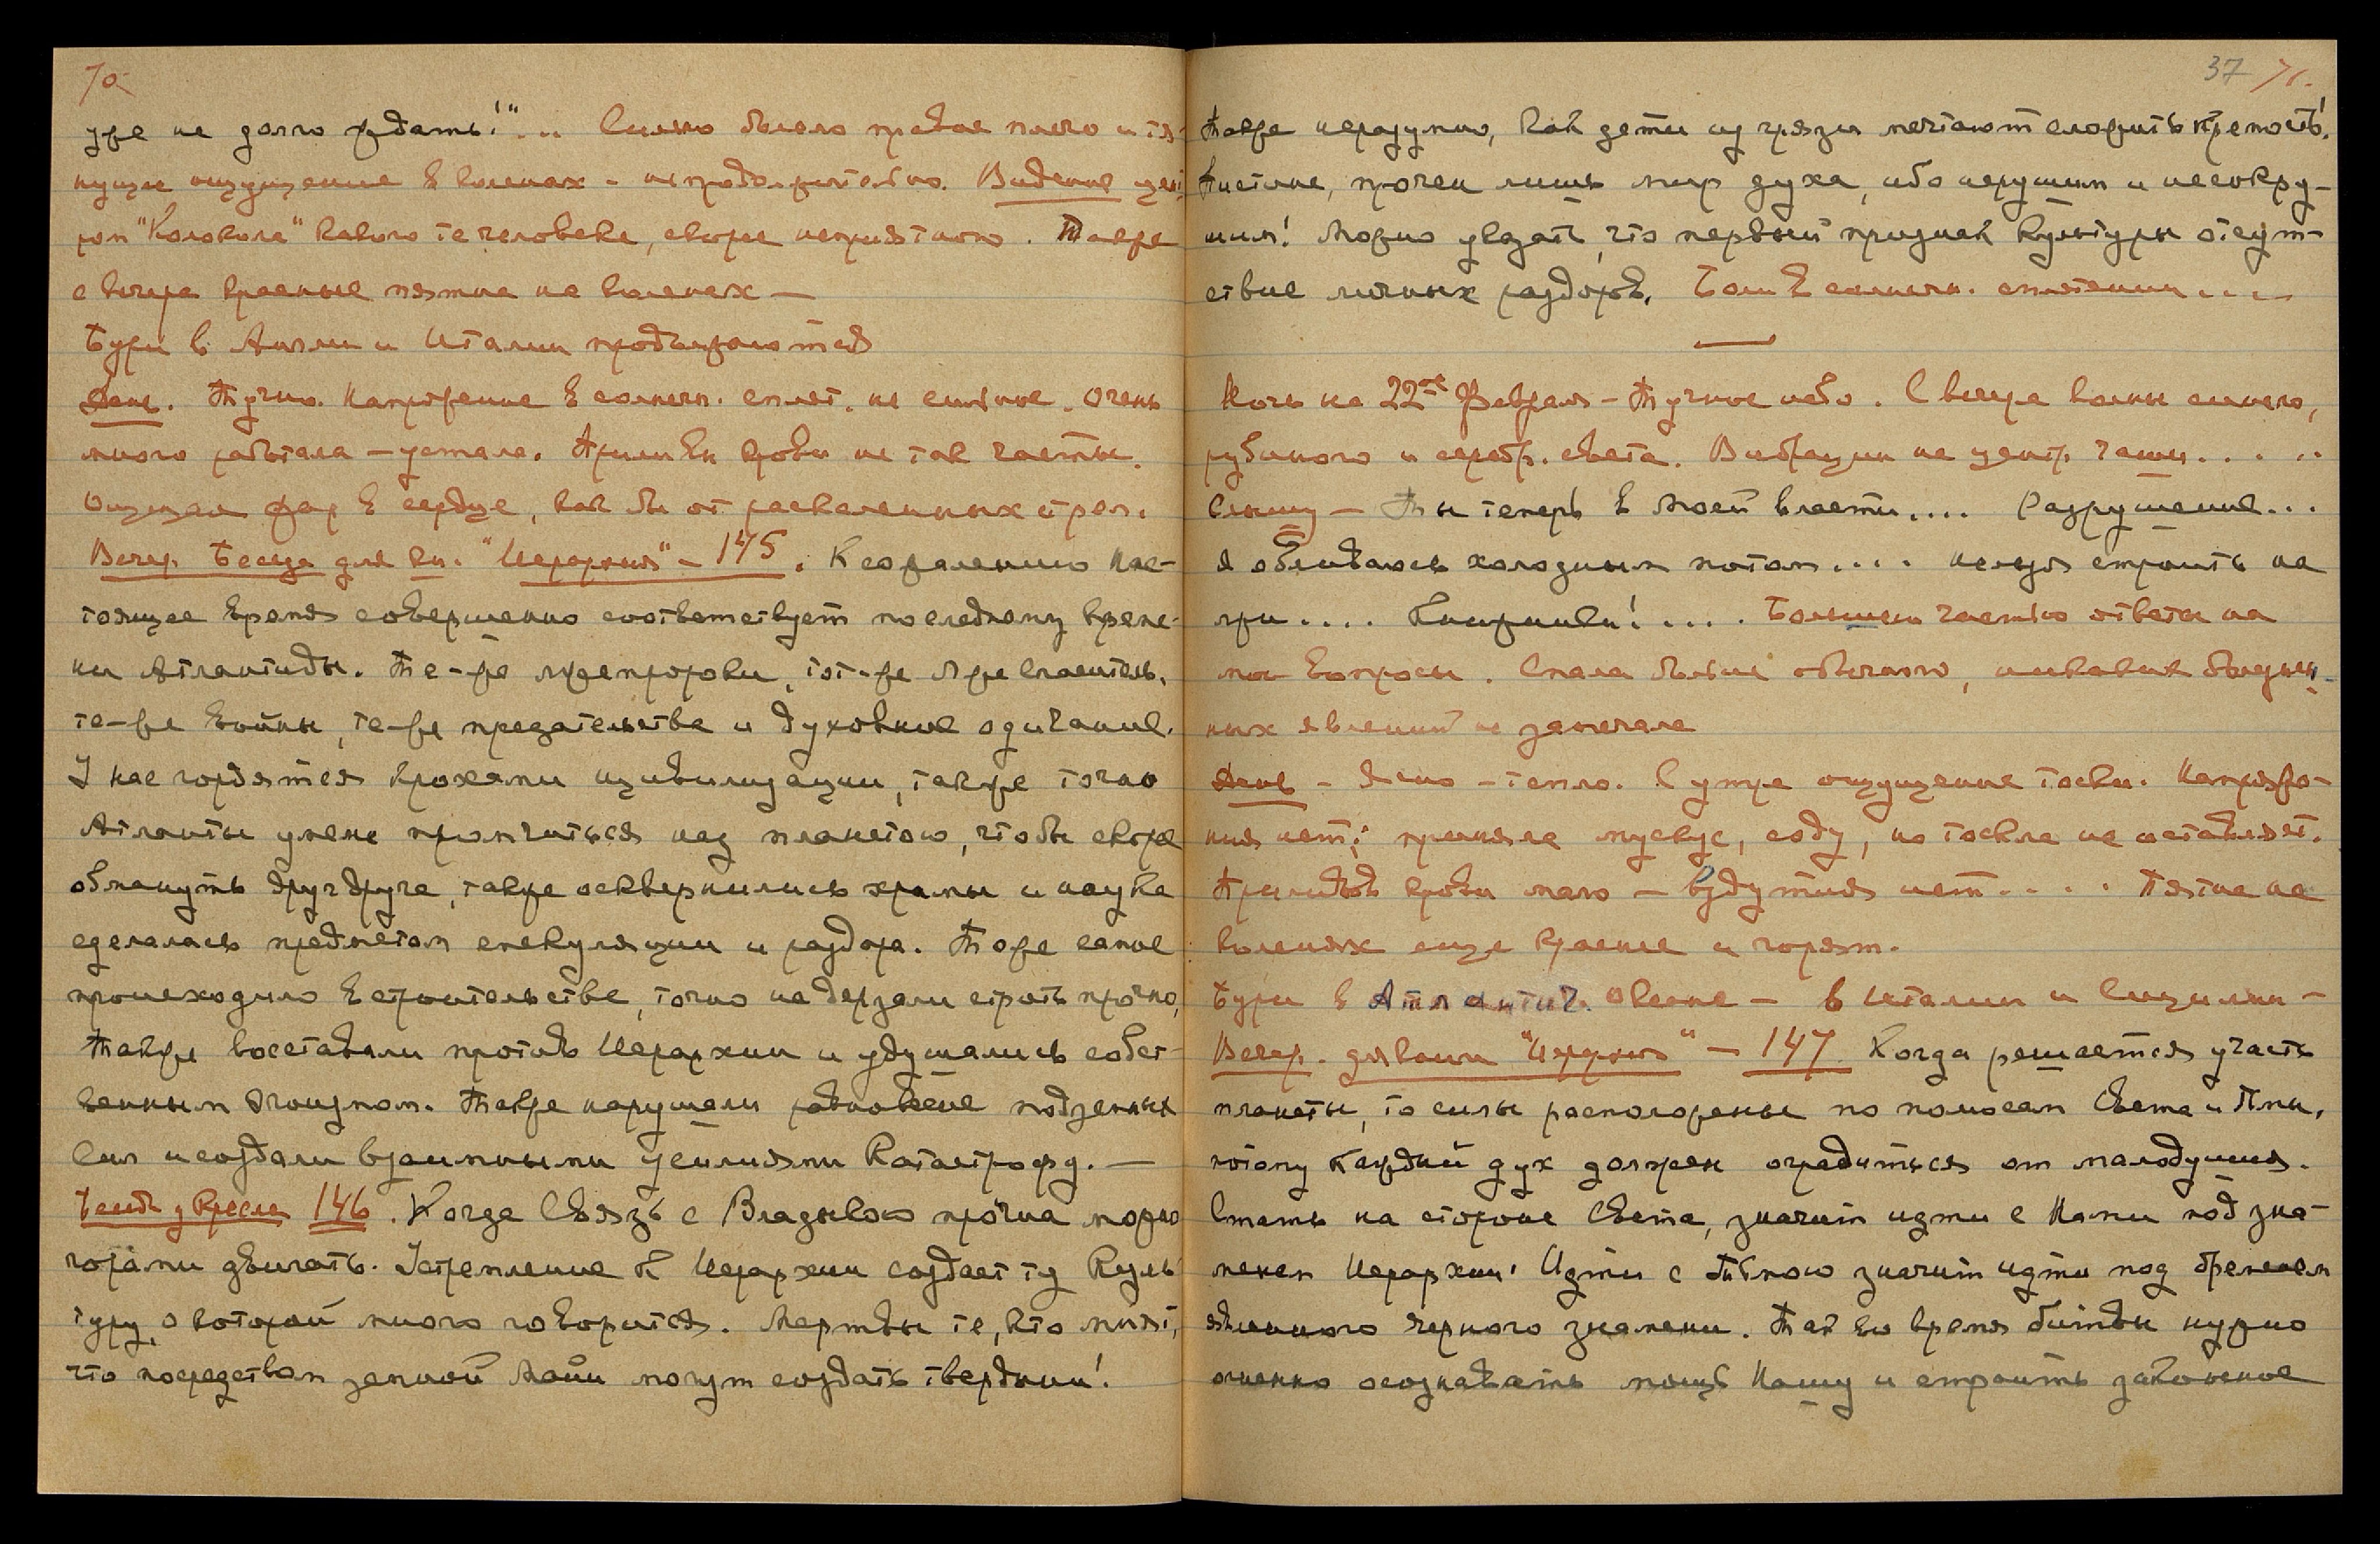 70
уже не долго ждать!"... Сильно болело правое плечо и тя-
нущее ощущение в коленах – непродолжительно. Видение цент-
ром "Колокола" какого-то человека, скорее неприятного. Также
с вечера красные пятна на коленах —
Бури в Англии и Италии продолжаются
День. Тучно. Напряжение в солнечн. сплет. не сильное. Очень
много работала – устала. Приливы крови не так часты.
Ощущала жар в сердце, как бы от раскаленных стрел.
Вечер. Беседа для кн. "Иерархия" – 145. К сожалению нас-
тоящее время совершенно соответствует последнему време-
ни Атлантиды. Те-же лжепророки, тот-же лжеспаситель,
те-же войны, те-же предательства и духовное одичание.
У нас гордятся крохами цивилизации, также точно
Атланты умели промчаться над планетою, чтобы скорее
обмануть друг друга, также осквернились храмы и наука
сделалась предметом спекуляции и раздора. То же самое
происходило в строительстве, точно не дерзали строить прочно,
Также восставали против Иерархии и удушались собст-
венным эгоизмом. Также нарушали равновесие подземных
сил и создали взаимными усилиями Катастрофу. —
Бесед. у кресла 146. Когда Связь с Владыкою прочна можно
горами двигать. Устремление к Иерархии создает ту Куль-
туру, о которой много говорится. Мертвы те, кто мнят,
что посредством земной Майи могут создать твердыни!
37 71.
Также неразумно, как дети из грязи мечтают сложить крепость!
Истинно, прочен лишь мир духа, ибо нерушим и несокру-
шим! Можно указать, что первый признак Культуры отсут-
ствие личных раздоров. Боли в солнечн. сплетении....
Ночь на 22ое Февраля – Тучное небо. С вечера волны синего,
рубиного и серебр. света. Вибрации на центр. чаши.....
Слышу – Ты теперь в Моей власти.... Разрушение...
я обливаюсь холодным потом.... нельзя строить на
лжи.... Книжники!.... Большею частью ответы на
мои вопросы. Спала больше обычного, никаких болезнен-
ных явлений не замечала
День – Ясно – тепло. С утра ощущение тоски. Напряже-
ния нет; приняла мускус, соду, но тоска не оставляет.
Приливов крови мало – вздутия нет.... Пятна на
коленях еще краснее и горят.
Бури в Атлантич. Океане – в Италии и Сицилии –
Вечер. для книги "Иерархия" – 147 Когда решается участь
планеты, то силы расположены по полюсам Света и Тьмы,
потому каждый дух должен оградиться от малодушия.
Стать на стороне Света, значит идти с Нами под зна-
менем Иерархии! Идти с Тьмою значит идти под бременем
явленного черного знамени. Так во время битвы нужно
огненно осознавать мощь Нашу и строить законное